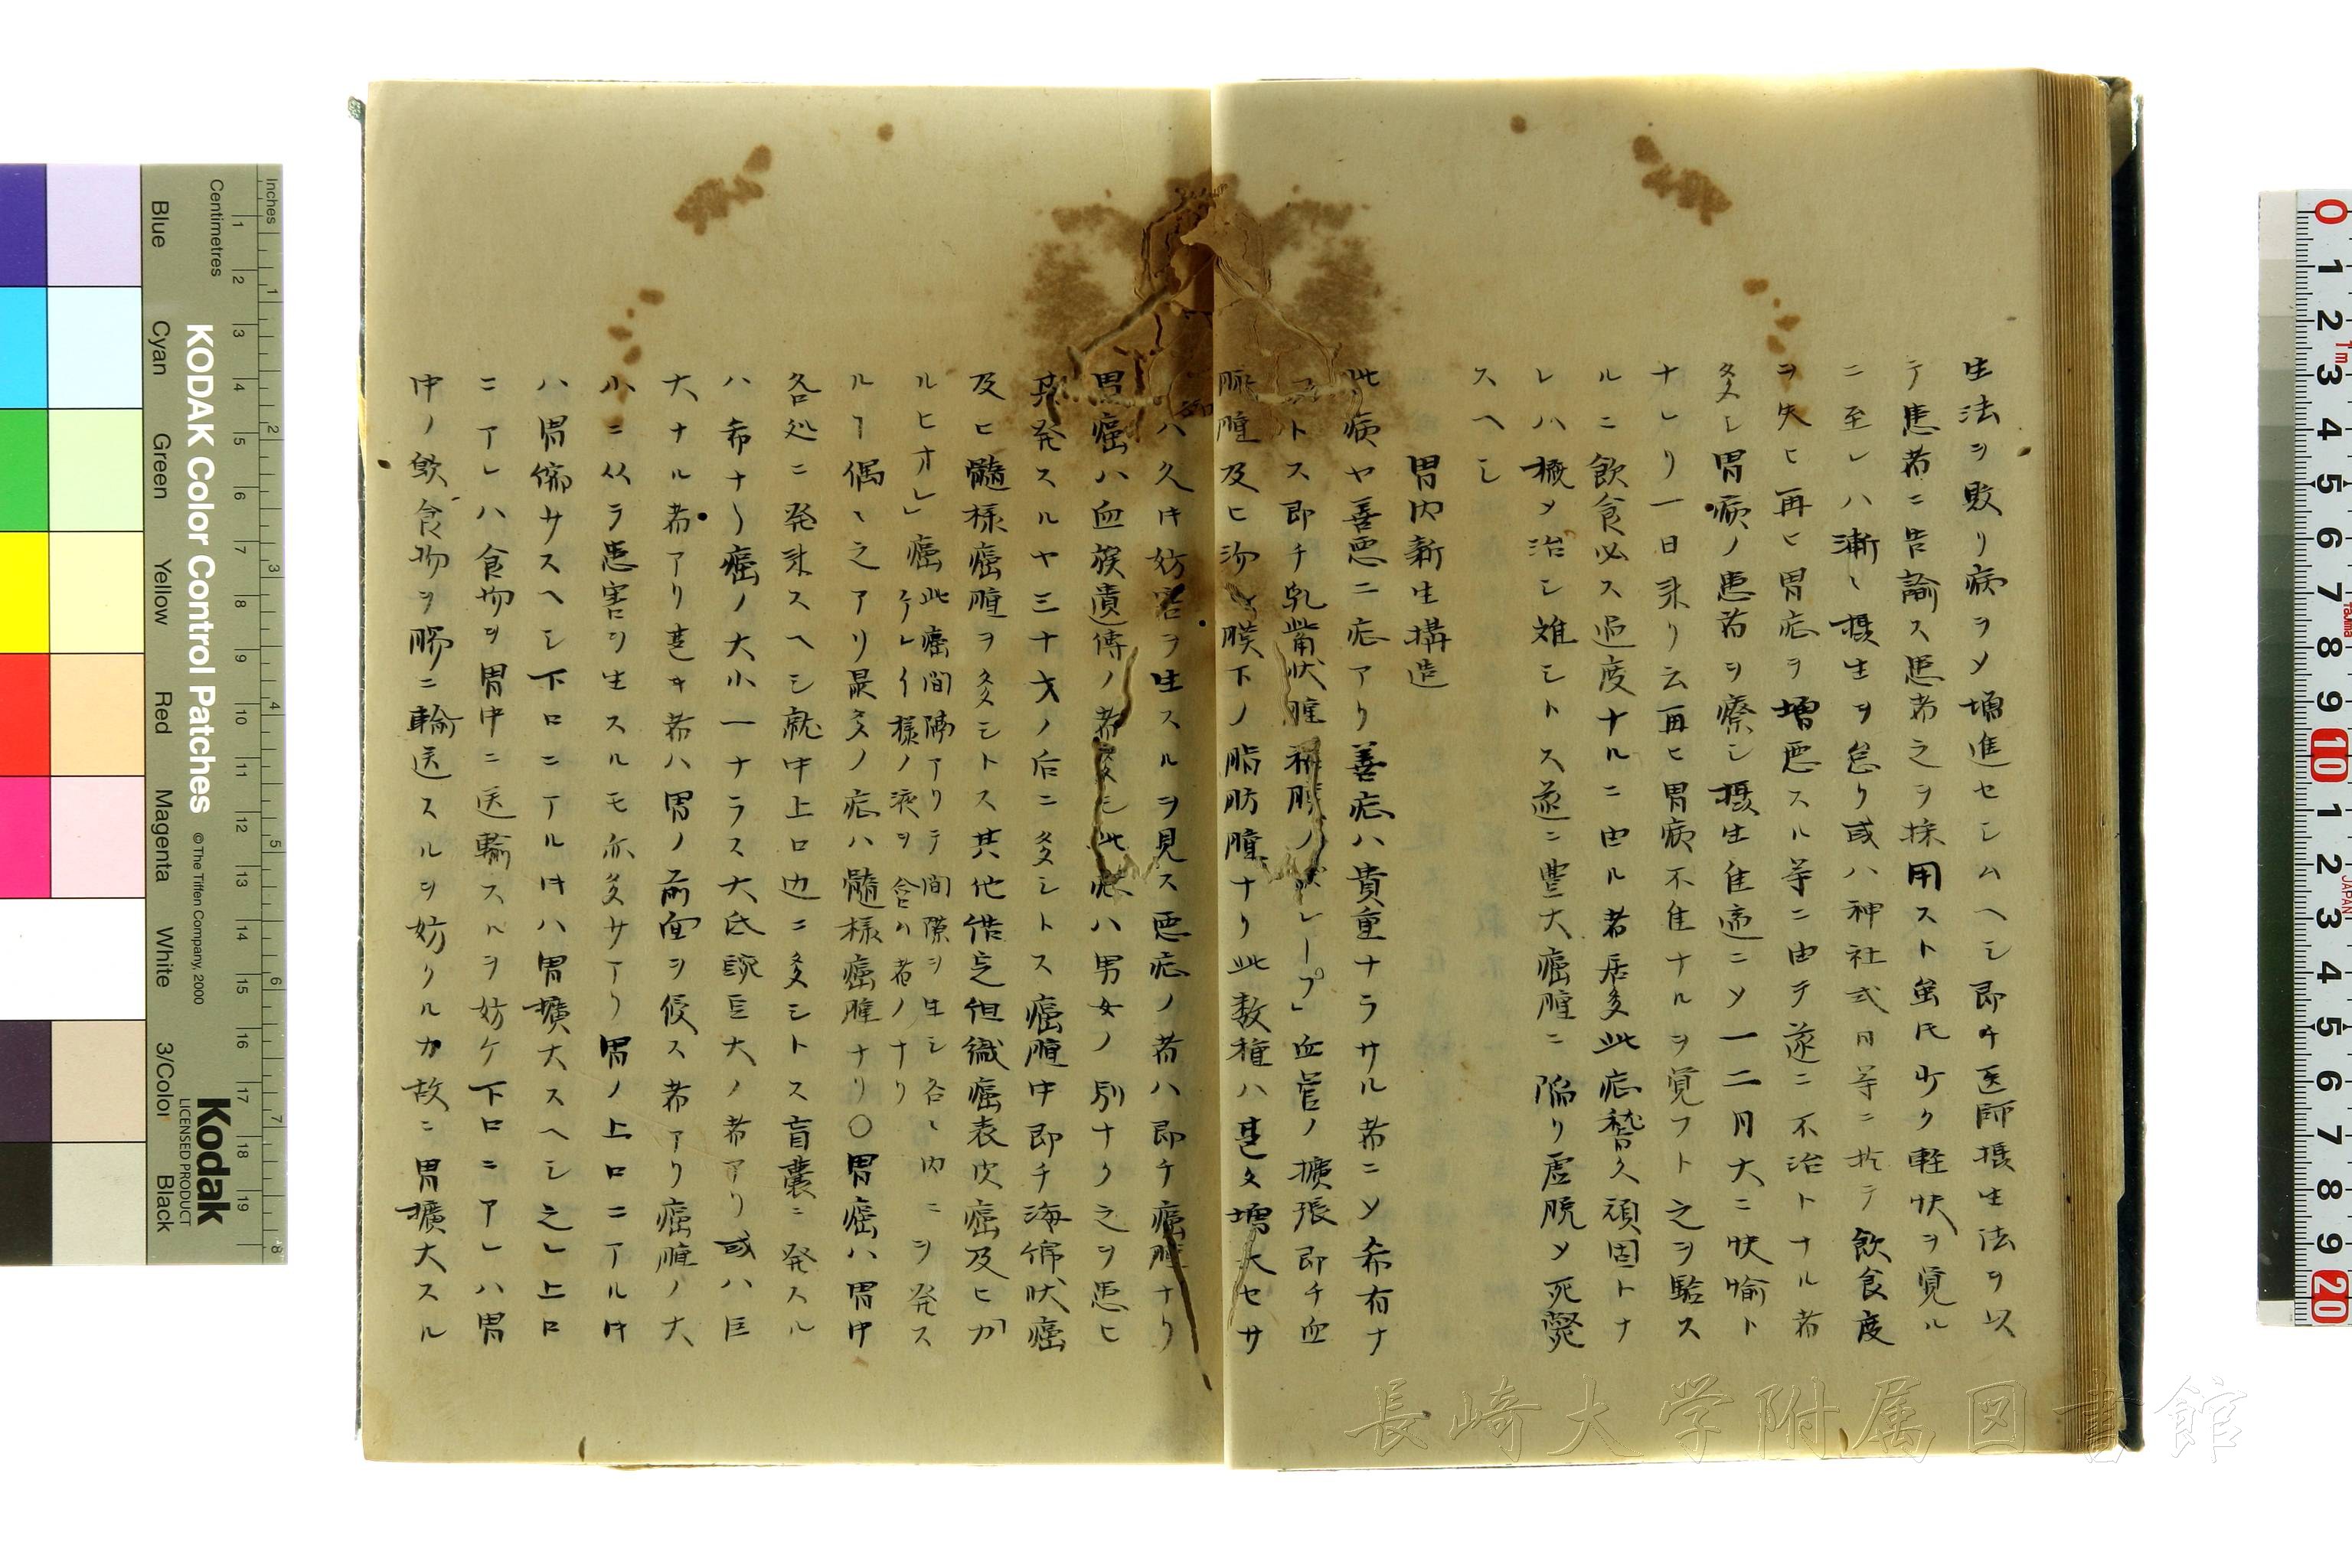 生法ヲ敗リ病ヲメ増進セシムヘシ即チ医師摂生法ヲ以
テ患者ニ告諭ス患者之ヲ採用スト虽圧少ク軽快ヲ覚ル
ニ至レハ漸〻摂生ヲ怠リ或ハ神社式日等ニ於テ飲食度
ヲ失ヒ再ヒ胃症ヲ増悪スル等ニ由テ遂ニ不治トナル者
多シ胃病ノ患者ヲ療シ摂生佳適ニメ一二月大ニ快愉ト
ナレリ一日来リ云再ヒ胃病不佳ナルヲ覚フト之ヲ驗ス
ルニ飲食必ス過度ナルニ由ル者居多此症稽久頑固トナ
レハ極メ治シ難シトス遂ニ豊大癌腫ニ陥リ虚脱メ死斃
スヘシ
胃内新生搆造
此病ヤ善悪ニ症アリ善症ハ貴重ナラサル者ニメ希有ナ
トス即チ乳觜状腫 レープ」血管ノ擴張即チ血
脈腫及ヒ 膜下ノ脂肪腫ナリ此数種ハ甚タ増大セサ
ハ久キ妨害ヲ生スルヲ見ス悪症ノ者ハ即チ癌腫ナリ
胃癌ハ血族遺傳ノ者多シ此症ハ男女ノ別ナク之ヲ患ヒ
其発スルヤ三十才ノ后ニ多シトス癌腫中即チ海綿状癌
及ヒ髓様癌腫ヲ多シトス其他偖㝎但織癌表皮癌及ヒ「カ
ルヒオ」癌此癌間隔アリテ間隙ヲ生シ各〻内ニ
ケレイ様ノ液ヲ含ム者ノナリ
ヲ発ス
ルヿ偶〻之アリ最多ノ症ハ髓様癌腫ナリ〇胃癌ハ胃中
各処ニ発来スヘシ就中上口辺ニ多シトス盲嚢ニ発スル
ハ希ナリ癌ノ大小一ナラス大氐豌豆大ノ者アリ或ハ巨
大ナル者アリ甚キ者ハ胃ノ前面ヲ侵ス者アリ癌腫ノ大
小ニ从ラ患害ヲ生スルモ亦多サアリ胃ノ上口ニアル片
ハ胃縮サスヘシ下口ニアル片ハ胃擴大スヘシ之レ上口
ニアレハ食物ヲ胃中ニ送輸スルヲ妨ケ下口ニアレハ胃
中ノ飲食物ヲ腸ニ輸送スルヲ妨クルカ故ニ胃擴大スル
KODAK Color Control Patches
© The Tiffen Company, 2000
Kodak
LICENSED PRODUCT
Inches
Centimetres
Blue
Cyan
Green
Yellow
Red
Magenta
White
3/Color
Black
長崎大学附属図書館